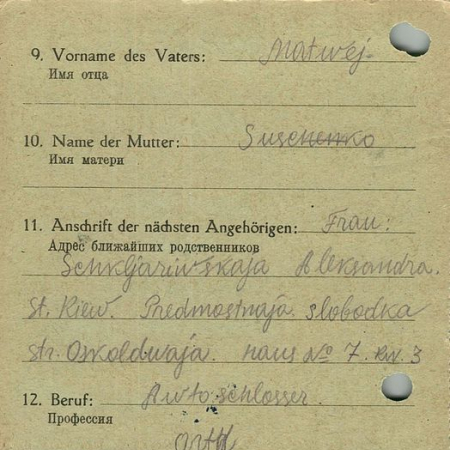 9. Vorname des Vaters: Matwéj
Имя отца
10. Name der Mutter: Suschenko
Имя матери
11. Anschrift der nächsten Angehörigen: Frau:
Адрес ближайших родственников
Schkljariwskaja Aleksandra.
st. Kiew. Predmostnaja slobodka
str. Oskolduvaja. haus № 7. kv. 3
12. Beruf: Autoschlosser.
Профессия